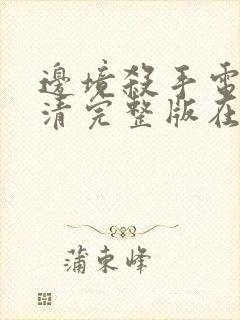 邊境殺手電
清完整版在
蒲東峰